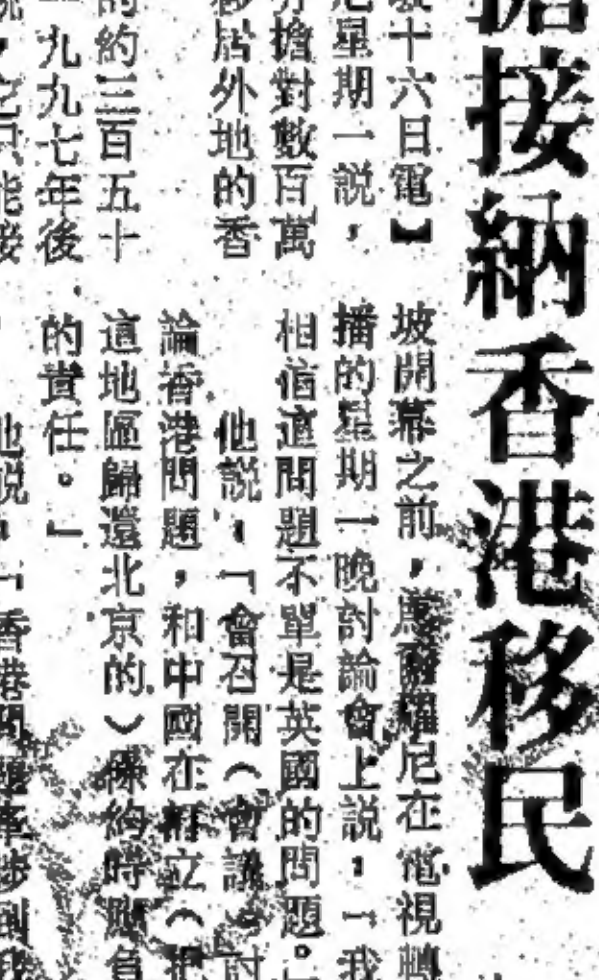 擔接納香港移民
十六日電】
尼星期一說，
擔對數百萬
移居外地的香
的約三百五十
九九七年後
之只能接
坡開幕之前，馬爾羅尼在電視轉
播的星期一晚討論會上說：「我
相信這問題不單是英國的問題。」
他說：「會召開（會議）討
論香港問題，和中國在訂立（把
這地區歸還北京的）條約時賦負
的責任。」
他說：「香港問題牽涉到